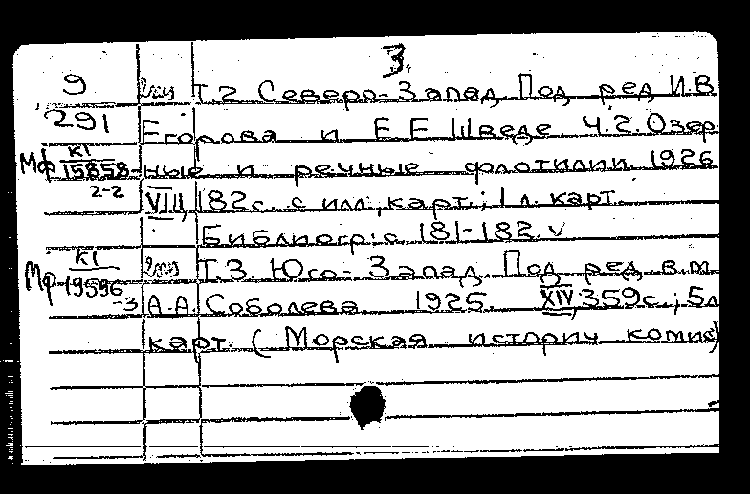 3.
9 2экз Т.2 Северо-Запад Под ред И.В
291 Егорова и Е Е Шведе Ч.2. Озер
Мф К1 15858- ные и речные флотилии 1926
2-2 VIII, 182с. с илл., карт.; 1 л. карт.
Библиогр: с. 181-182. v
Мф К1 19596 -3 2экз Т.3. Юго-Запад Под ред в.м.
А.А. Соболева 1925. XIV, 359с.; 5л
карт. (Морская историч комис)